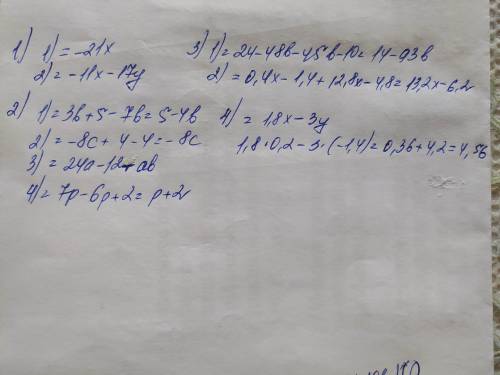 1) 1) = -21x
2) = -11x - 17y
2) 1) = 3b + 5 - 7b = 5 - 4b
2) = -8c + 4 - 4 = -8c
3) = 24a - 12 - ab
4) = 7p - 6p + 2 = p + 2
3) 1) = 24 - 48b - 45b - 10 = 14 - 93b
2) = 0,4x - 1,4 + 12,8x - 4,8 = 13,2x - 6,2
4) = 1,8x - 3y
1,8 · 0,2 - 3 · (-1,4) = 0,36 + 4,2 = 4,56